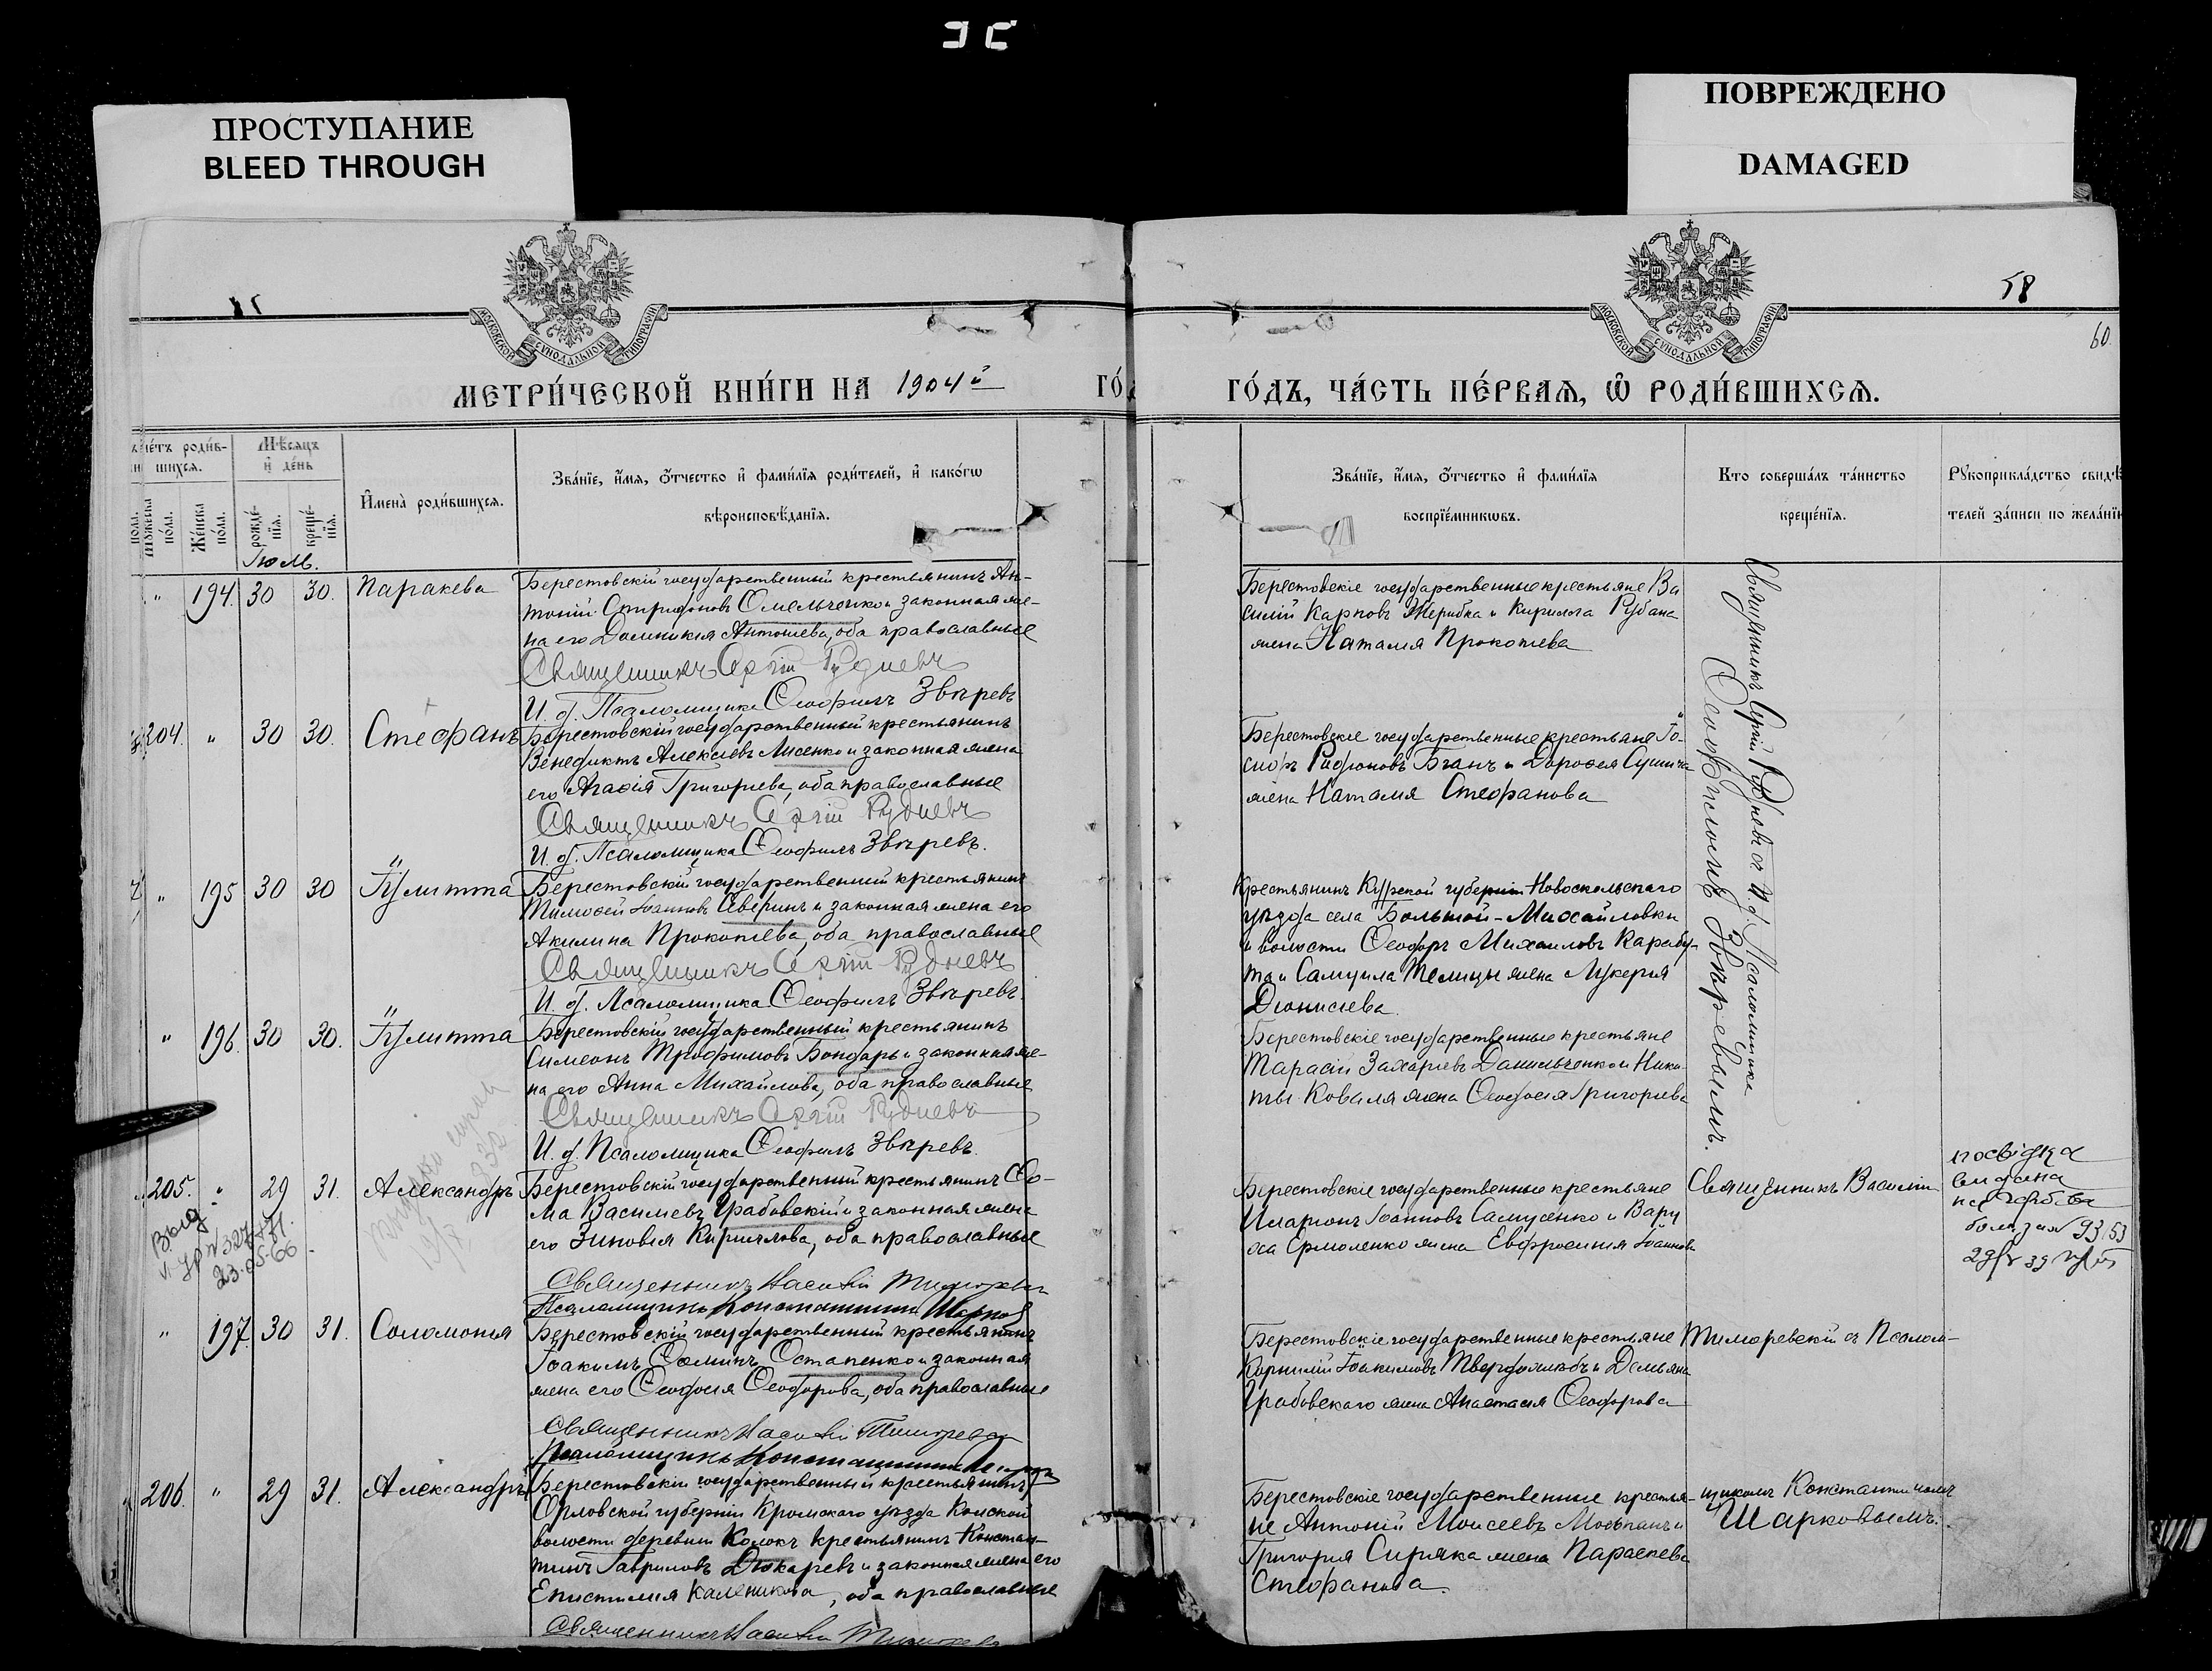 ПРОСТУПАНИЕ
BLEED THROUGH
ПОВРЕЖДЕНО
DAMAGED
МОСКОВСКОЙ СУНОДАЛЬНОЙ ТИПОГРАФІИ
МОСКОВСКОЙ СУНОДАЛЬНОЙ ТИПОГРАФІИ
58
60.
МЕТРИ́ЧЕСКОЙ КНИ́ГИ НА 1904й
ГО́ДЪ, ЧА́СТЬ ПЕ́РВАЯ, Ѽ РОДИ́ВШИХСЯ.
че́тъ роди́в-
шихся.
Мѣ́сяцъ
и҆ де́нь
Мꙋ́жеска по́ла.
Же́нска по́ла.
рожде́-нїѧ.
креще́-нїѧ.
И҆мена̀ роди́вшихся.
Зва́нїе, и҆́мя, ѻ҆́тчество и҆ фами́лїя роди́телей, и҆ како́гѡ
вѣроисповѣ́данїя.
Зва́нїе, и҆́мя, ѻ҆́тчество и҆ фами́лїя
воспрїе́мникѡвъ.
Кто соверша́лъ та́инство
креще́нїя.
Рꙋкоприкла́дство свидѣ́
телей за́писи по жела́нїю
Іюль.
" 194. 30 30. Параскева
Берестовскій государственный крестьянинъ Ан-
тоній Спиридоновъ Омельченко и законная же-
на его Домникія Антоніева, оба православные
Священникъ Сергій Рудневъ
И. д. Псаломщика Ѳеофилъ Звѣревъ
Берестовскіе государственные крестьяне Ва
силій Карповъ Жерибка и Кирилла Рубана
жена Наталія Прокопіева
Священникъ Сергій Рудневъ съ И. д. Псаломщика
Ѳеофиломъ Звѣревымъ.
204. " 30 30. Стефанъ
Берестовскій государственный крестьянинъ
Венедиктъ Алексѣевъ Лисенко и законная жена
его Агафія Григоріева, оба православные
Священникъ Сергій Рудневъ
И. д. Псаломщика Ѳеофилъ Звѣревъ.
Берестовскіе государственные крестьяне Іо-
сифъ Родіоновъ Бганъ и Дорофея Сушича
жена Наталія Стефанова
" 195 30 30 Іулитта
Берестовскій государственный крестьянинъ
Тимофей Іоанновъ Аверинъ и законная жена его
Акилина Прокопіева, оба православные
Священникъ Сергій Рудневъ
И. д. Псаломщика Ѳеофилъ Звѣревъ.
Крестьянинъ Курской губерніи Новооскольскаго
уѣзда села Большой-Михайловки
и волости Ѳеодоръ Михаиловъ Карабу-
та и Самуила Телицы жена Лукерія
Діонисіева.
" 196. 30 30. Іулитта
Берестовскій государственный крестьянинъ
Симеонъ Трофимовъ Бондарь и законная же-
на его Анна Михайлова, оба православные
Священникъ Сергій Рудневъ
И. д. Псаломщика Ѳеофилъ Звѣревъ.
Берестовскіе государственные крестьяне
Тарасій Захаріевъ Данильченко и Ники-
ты Коваля жена Ѳеодосія Григоріева
205. " 29 31. Александръ
Выд.
23.05.66
Берестовскій государственный крестьянинъ Ѳо-
ма Василіевъ Грабовскій и законная жена
его Зиновія Кириллова, оба православные
Священникъ Василій Тиморевскій
Псаломщикъ Константинъ Шарковъ
Берестовскіе государственные крестьяне
Иларіонъ Іоанновъ Самусенко и Вару
ха Ермоленко жена Евфросинія Іоаннова
Священникъ Василій
посвідка
видана
" 197. 30 31. Соломонія
Берестовскій государственный крестьянинъ
Іоакимъ Ѳоминъ Остапенко и законная
жена его Ѳеодосія Ѳеодорова, оба православные
Священникъ Василій Тиморевскій
Псаломщикъ Константинъ Шарковъ
Берестовскіе государственные крестьяне
Корнилій Іоакимовъ Твердохлѣбъ и Демьяна
Грабовскаго жена Анастасія Ѳеодорова
Тиморевскій съ Псалом-
206. " 29 31. Александръ
Берестовскій государственный крестьянинъ
Орловской губерніи Кромскаго уѣзда Конской
волости деревни Колокъ крестьянинъ Констан-
тинъ Гавриловъ Дюкаревъ и законная жена его
Епистимія Каленикова, оба православные
Священникъ Василій Тиморевскій
Берестовскіе государственные крестья-
не Антоній Моисеевъ Мосьпанъ и
Григорія Сиряка жена Параскева
Стефанова.
щикомъ Константиномъ
Шарковымъ.